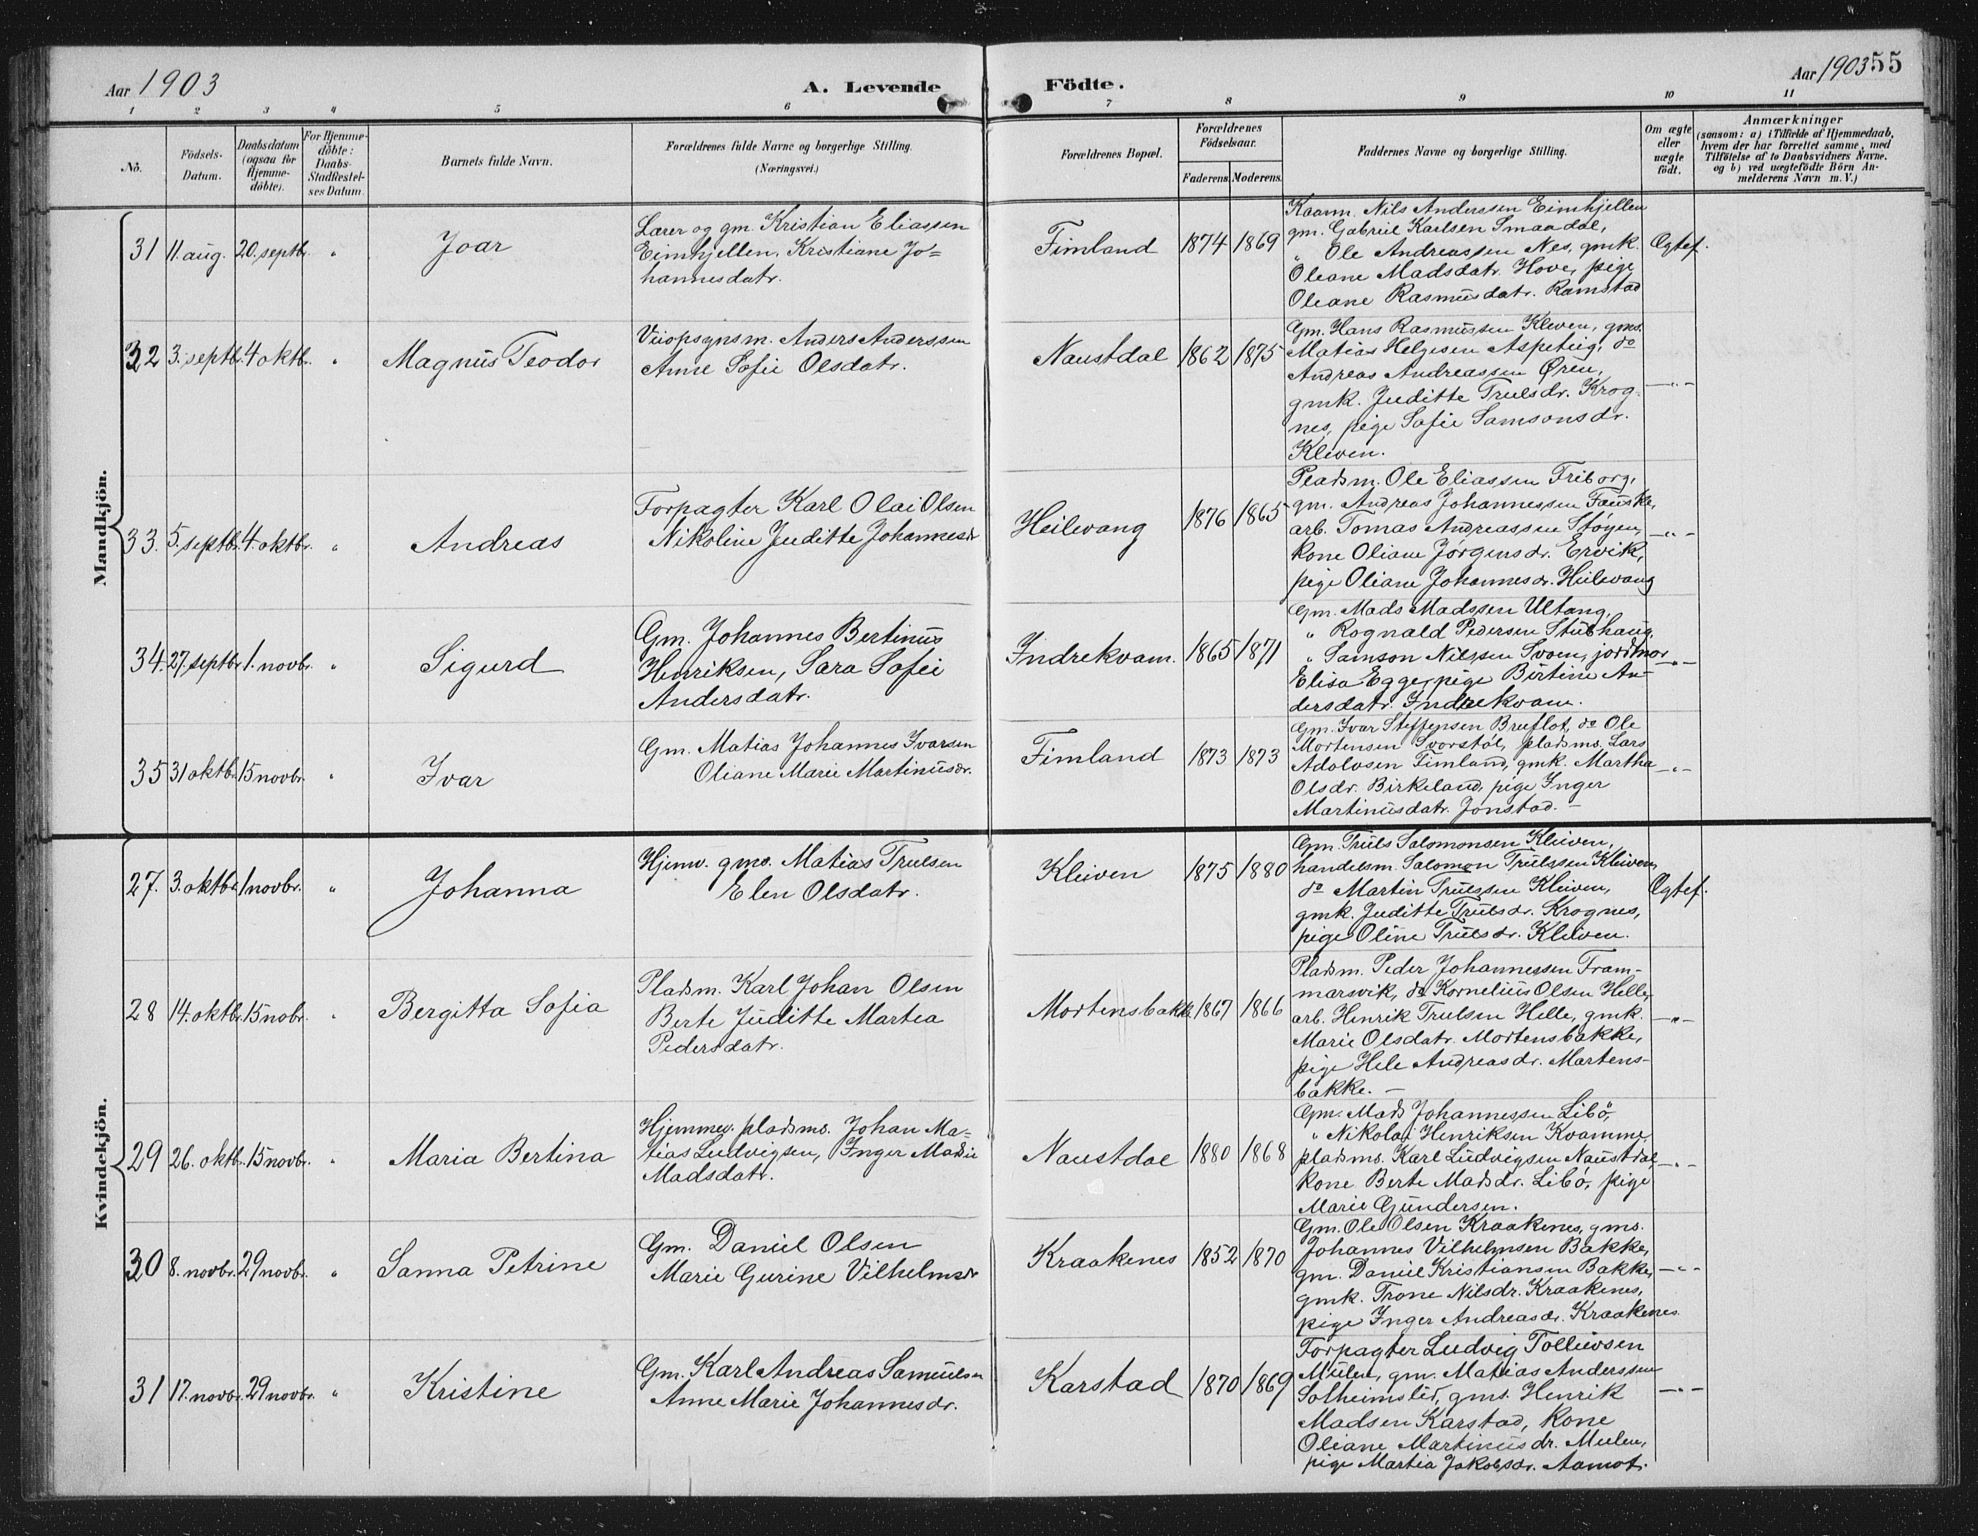 Aar 1903
A. Levende
Födte.
Aar 1903 55
1 2 3 4 5 6 7 8 9 10 11
No.
Födsels-
Datum.
Daabsdatum
(ogsaa for
Hjemme-
döbte).
For Hjemme-
döbte:
Daabs-
Stadfæstel-
ses Datum.
Barnets fulde Navn.
Forældrenes fulde Navne og borgerlige Stilling.
(Næringsvei.)
Forældrenes Bopæl.
Forældrenes
Födselsaar.
Faderens. Moderens.
Faddernes Navne og borgerlige Stilling.
Om ægte
eller
uægte
födt.
Anmærkninger
(saasom: a) i Tilfælde af Hjemmedaab,
hvem der har forrettet samme, med
Tilföielse af to Daabsvidners Navne,
og b) ved uægtefödte Börn An-
melderens Navn m. V.)
Mandkjön.
31 11. aug. 20. septbr. " Joar
Lærer og gm. Kristian Eliassen
Eimhjellen, Kristiane Jo-
hannesdatr.
Fimland 1874 1869
Kaarm. Nils Anderssen Eimhjellen
gm. Gabriel Karlsen Smaadal,
" Ole Andreassen Nes, gmk.
Oleane Madsdatr. Hove, pige
Oleane Rasmusdatr. Ramstad
Ægtef.
32 3. septbr. 4. oktb. " Magnus Teodor
Veiopsynsm. Anders Anderssen
Anne Sofie Olsdatr.
Naustdal 1862 1875
Gm. Hans Rasmussen Kleven, gms.
Matias Helgesen Aspeteig, do
Andreas Andreassen Øren,
gmk. Juditte Trulsdr. Krog-
nes, pige Sofie Samsonsdr.
Kleven.
—"—
33. 5. septbr. 4. oktbr. " Andreas
Forpagter Karl Olai Olsen
Nikoline Juditte Johannesdr
Heilevang 1876 1865
Pladsm. Ole Eliassen Friborg,
gm. Andreas Johannessen Fauske,
arb. Tomas Andreassen Støyen,
kone Oliane Jørgensdr. Ervik,
pige Oliane Johannesdr. Heilevang
—"—
34. 27. septbr. 1. novbr. " Sigurd
Gm. Johannes Bertinus
Henriksen, Sara Sofie
Andersdatr.
Indrekvam. 1865 1871
Gm. Mads Madssen Ultang,
" Rognald Pedersen Stubhaug,
" Samson Nilssen Svoen, jordmor
Elisa Egge, pige Birtine An-
dersdatr. Indrekvam.
—"—
35 31 oktbr. 15 novbr. " Ivar
Gm. Matias Johannes Ivarsen
Oliane Marie Martinusdr.
Fimland 1873 1873
Gm. Ivar Steffensen Bruflot, do Ole
Mortensen Svorstøl, pladsms. Lars
Adolvsen Fimland, gmk. Martha
Olsdr. Birkeland, pige Inger
Martinusdatr. Jonstad.—
—"—
Kvindekjön.
27. 3. oktbr. 1 novbr. " Johanna
Hjemv. gms. Matias Trulsen
Elen Olsdatr.
Kleiven 1875 1880
Gm. Truls Salomonsen Kleiven,
handelsm. Salomon Trulssen Kleiven,
do Martin Trulssen Kleiven,
gmk. Juditte Trulsdr. Krognes,
pige Oline Trulsdr. Kleiven.
Ægtef.
28 14. oktbr. 15 nobr. " Bergitta Sofia
Pladsm. Karl Johan Olsen
Berte Juditte Martea
Pedersdatr.
Mortensbakke 1867 1866
Pladsm. Peder Johannessen Fram-
marsvik, do Kornelius Olsen Helle,
arb. Henrik Trulsen Helle, gmk.
Marie Olsdatr. Mortensbakke,
pige Hele Andreasdr. Martens-
bakke.—
—"—
29 26. oktb. 15 novbr. " Maria Bertina
Hjemmev. pladsms. Johan Ma-
tias Ludvigsen, Inger Marie
Madsdatr.
Naustdal 1880 1868
Gm. Mads Johannessen Libø,
" Nikolai Henriksen Kvamme,
pladsms. Karl Ludvigsen Naustdal,
kone Berte Madsdr. Libø, pige
Marie Gundersen.
—"—
30 8. novbr. 29 novbr. " Sanna Petrine
Gm. Daniel Olsen
Marie Gurine Vilhelmsdr
Kraakenes 1852 1870
Gm. Ole Olsen Kraakenes, gms.
Johannes Vilhelmsen Bakke,
gm. Daniel Kristiansen Bakke,
gmk. Trone Nilsdr. Kraakenes,
pige Inger Andreasdr. Kraakenes.
—"—
31 17. novbr. 29 novbr. " Kristine
Gm. Karl Andreas Samuelsen
Anne Marie Johannesdr.
Karstad 1870 1869
Forpagter Ludvig Tollevsen
Mulen, gm. Matias Anderssen
Solheimslid, gms. Henrik
Madsen Karstad, kone
Oliane Martinusdr. Mulen,
pige Martia Jakobsdr. Aamot.
—"—